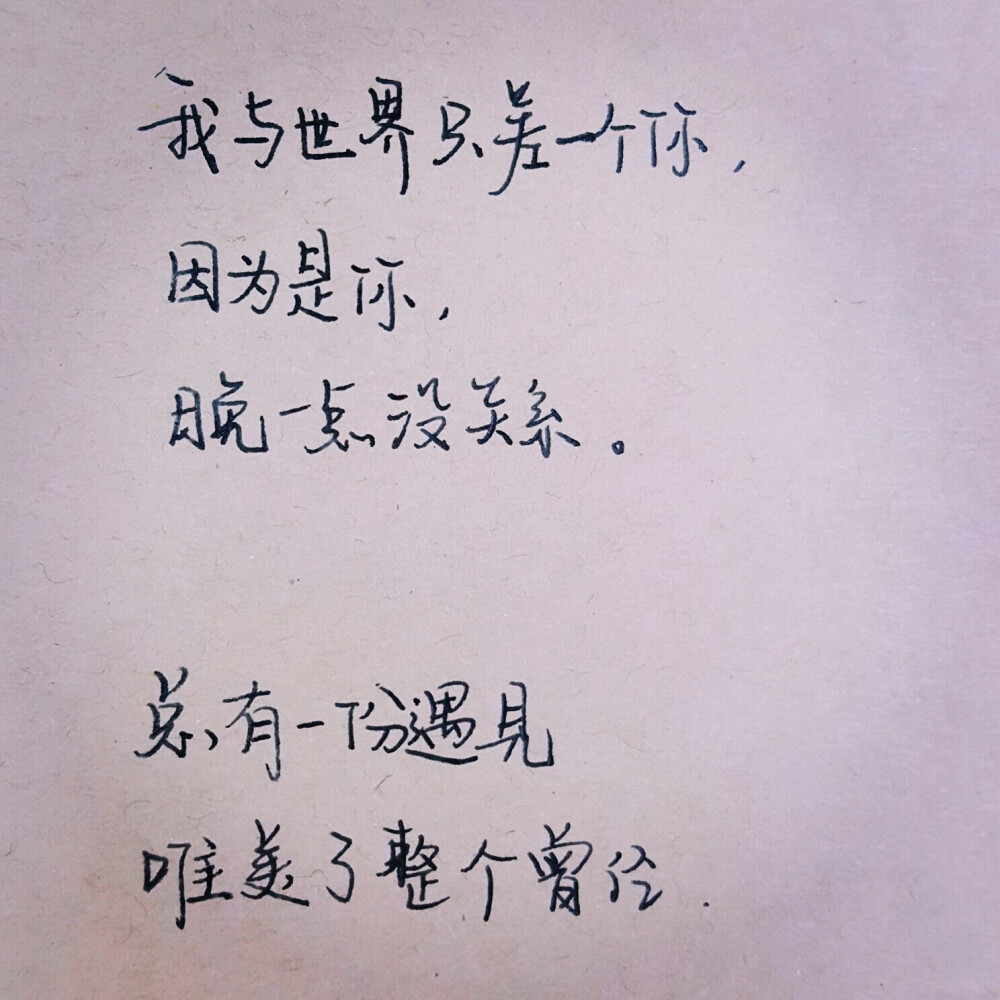 我与世界只差一个你，
因为是你，
晚一点没关系。
总有一份遇见
唯美了整个曾经.